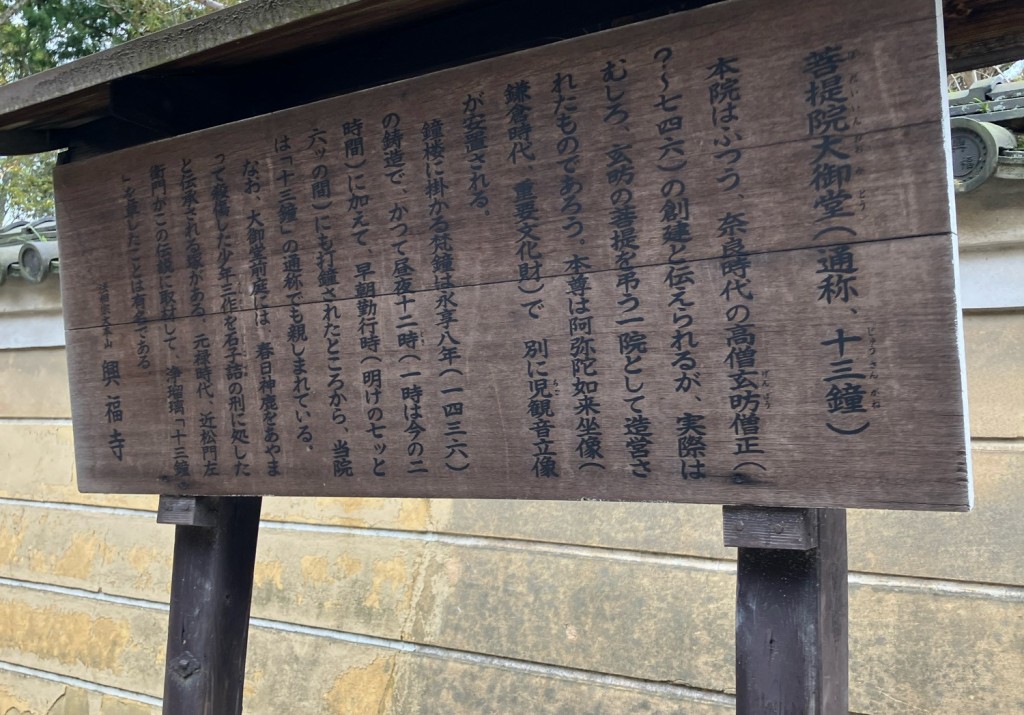 菩提院大御堂(通称、十三鐘)
本院はふつう、奈良時代の高僧玄昉僧正(
?〜七四六)の創建と伝えられるが、実際は
むしろ、玄昉の菩提を弔う一院として造営さ
れたものであろう。本尊は阿弥陀如来坐像(
鎌倉時代、重要文化財)で 別に児観音立像
が安置される。
鐘楼に掛かる梵鐘は永享八年(一四三六)
の鋳造で、かつて昼夜十二時(一時は今の二
時間)に加えて、早朝勤行時(明けの七ッと
六ッの間)にも打鐘されたところから、当院
は「十三鐘」の通称でも親しまれている。
なお、大御堂前庭には、春日神鹿をあやま
って殺傷した少年三作を石子詰の刑に処した
と伝承される塚がある。元禄時代、近松門左
衛門がこの伝説に取材して、浄瑠璃「十三鐘
」を草したことは有名である
法相宗大本山 興福寺